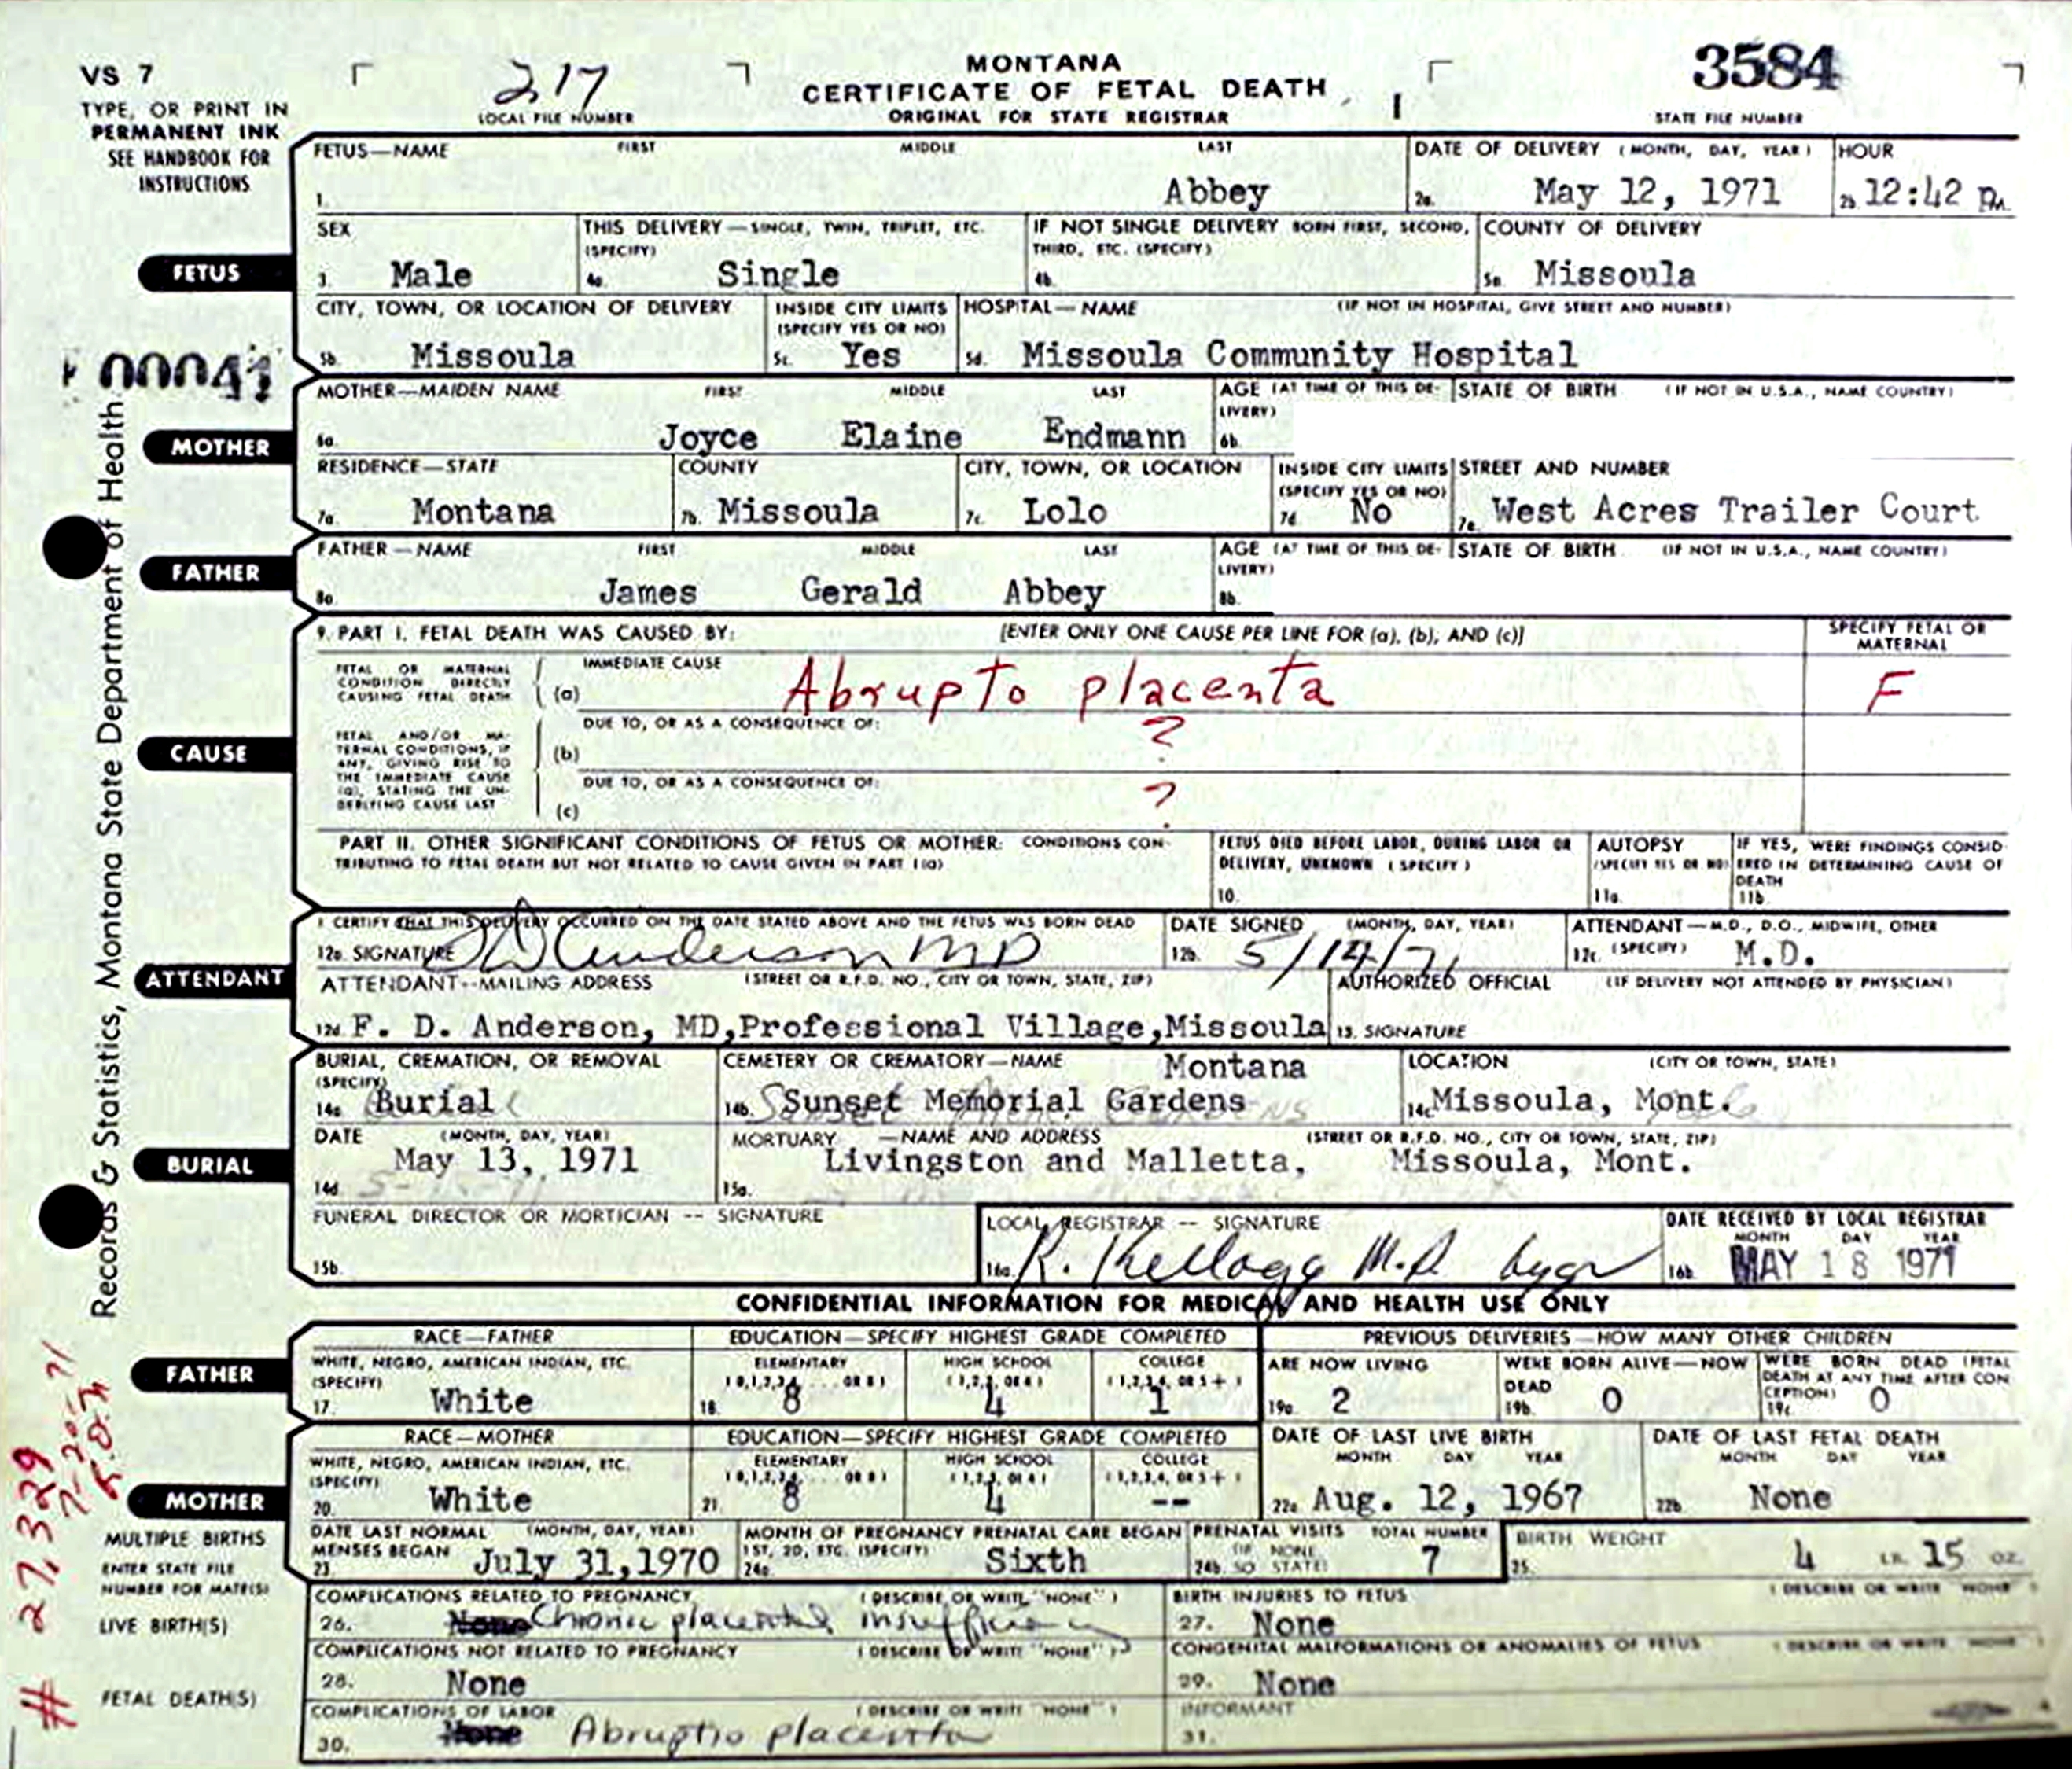 VS 7
TYPE, OR PRINT IN
PERMANENT INK
SEE HANDBOOK FOR
INSTRUCTIONS
217
LOCAL FILE NUMBER
MONTANA
CERTIFICATE OF FETAL DEATH
ORIGINAL FOR STATE REGISTRAR
3584
STATE FILE NUMBER
FETUS
FETUS—NAME FIRST MIDDLE LAST
1. Abbey
DATE OF DELIVERY (MONTH, DAY, YEAR)
2a. May 12, 1971
HOUR
2b. 12:42 Pm.
SEX
3. Male
THIS DELIVERY—SINGLE, TWIN, TRIPLET, ETC.
(SPECIFY)
4a. Single
IF NOT SINGLE DELIVERY BORN FIRST, SECOND,
THIRD, ETC. (SPECIFY)
4b.
COUNTY OF DELIVERY
5a. Missoula
CITY, TOWN, OR LOCATION OF DELIVERY
5b. Missoula
INSIDE CITY LIMITS
(SPECIFY YES OR NO)
5c. Yes
HOSPITAL—NAME (IF NOT IN HOSPITAL, GIVE STREET AND NUMBER)
5d. Missoula Community Hospital
Records & Statistics, Montana State Department of Health
MOTHER
MOTHER—MAIDEN NAME FIRST MIDDLE LAST
6a. Joyce Elaine Endmann
AGE (AT TIME OF THIS DE-
LIVERY)
6b.
STATE OF BIRTH (IF NOT IN U.S.A., NAME COUNTRY)
RESIDENCE—STATE
7a. Montana
COUNTY
7b. Missoula
CITY, TOWN, OR LOCATION
7c. Lolo
INSIDE CITY LIMITS
(SPECIFY YES OR NO)
7d. No
STREET AND NUMBER
7e. West Acres Trailer Court
FATHER
FATHER—NAME FIRST MIDDLE LAST
8a. James Gerald Abbey
AGE (AT TIME OF THIS DE-
LIVERY)
8b.
STATE OF BIRTH (IF NOT IN U.S.A., NAME COUNTRY)
CAUSE
9. PART I. FETAL DEATH WAS CAUSED BY: [ENTER ONLY ONE CAUSE PER LINE FOR (a), (b), AND (c)]
SPECIFY FETAL OR
MATERNAL
FETAL OR MATERNAL
CONDITION DIRECTLY
CAUSING FETAL DEATH
IMMEDIATE CAUSE
(a) Abrupto placenta F
FETAL AND/OR MA-
TERNAL CONDITIONS, IF
ANY, GIVING RISE TO
THE IMMEDIATE CAUSE
(a), STATING THE UN-
DERLYING CAUSE LAST
DUE TO, OR AS A CONSEQUENCE OF:
(b) ?
DUE TO, OR AS A CONSEQUENCE OF:
(c) ?
PART II. OTHER SIGNIFICANT CONDITIONS OF FETUS OR MOTHER: CONDITIONS CON-
TRIBUTING TO FETAL DEATH BUT NOT RELATED TO CAUSE GIVEN IN PART I (a)
FETUS DIED BEFORE LABOR, DURING LABOR OR
DELIVERY, UNKNOWN (SPECIFY)
10.
AUTOPSY
(SPECIFY YES OR NO)
11a.
IF YES, WERE FINDINGS CONSID
ERED IN DETERMINING CAUSE OF
DEATH
11b.
ATTENDANT
I CERTIFY THAT THIS DELIVERY OCCURRED ON THE DATE STATED ABOVE AND THE FETUS WAS BORN DEAD
12a. SIGNATURE FD Anderson MD
DATE SIGNED (MONTH, DAY, YEAR)
12b. 5/14/71
ATTENDANT—M.D., D.O., MIDWIFE, OTHER
12c. (SPECIFY) M.D.
ATTENDANT--MAILING ADDRESS (STREET OR R.F.D. NO., CITY OR TOWN, STATE, ZIP)
12d. F. D. Anderson, MD,Professional Village,Missoula
Montana
AUTHORIZED OFFICIAL (IF DELIVERY NOT ATTENDED BY PHYSICIAN)
13. SIGNATURE
BURIAL
BURIAL, CREMATION, OR REMOVAL
(SPECIFY)
14a. Burial
CEMETERY OR CREMATORY—NAME
14b. Sunset Memorial Gardens
LOCATION (CITY OR TOWN, STATE)
14c. Missoula, Mont.
DATE (MONTH, DAY, YEAR)
May 13, 1971
14d.
MORTUARY —NAME AND ADDRESS (STREET OR R.F.D. NO., CITY OR TOWN, STATE, ZIP)
Livingston and Malletta, Missoula, Mont.
15a.
FUNERAL DIRECTOR OR MORTICIAN -- SIGNATURE
15b.
LOCAL REGISTRAR -- SIGNATURE
16a. R. Kellogg M.D.
DATE RECEIVED BY LOCAL REGISTRAR
MONTH DAY YEAR
16b. MAY 18 1971
CONFIDENTIAL INFORMATION FOR MEDICAL AND HEALTH USE ONLY
FATHER
RACE—FATHER
WHITE, NEGRO, AMERICAN INDIAN, ETC.
(SPECIFY)
17. White
EDUCATION—SPECIFY HIGHEST GRADE COMPLETED
ELEMENTARY HIGH SCHOOL COLLEGE
(0,1,2,3,4 . . . . OR 8) (1,2,3, OR 4) (1,2,3,4, OR 5+)
18. 8 4 1
PREVIOUS DELIVERIES—HOW MANY OTHER CHILDREN
ARE NOW LIVING
19a. 2
WERE BORN ALIVE—NOW
DEAD
19b. 0
WERE BORN DEAD (FETAL
DEATH AT ANY TIME AFTER CON
CEPTION)
19c. 0
MOTHER
RACE—MOTHER
WHITE, NEGRO, AMERICAN INDIAN, ETC.
(SPECIFY)
20. White
EDUCATION—SPECIFY HIGHEST GRADE COMPLETED
ELEMENTARY HIGH SCHOOL COLLEGE
(0,1,2,3,4 . . . . OR 8) (1,2,3, OR 4) (1,2,3,4, OR 5+)
21. 8 4 --
DATE OF LAST LIVE BIRTH
MONTH DAY YEAR
22a. Aug. 12, 1967
DATE OF LAST FETAL DEATH
MONTH DAY YEAR
22b. None
DATE LAST NORMAL (MONTH, DAY, YEAR)
MENSES BEGAN
23. July 31,1970
MONTH OF PREGNANCY PRENATAL CARE BEGAN
1ST, 2D, ETC. (SPECIFY)
24a. Sixth
PRENATAL VISITS TOTAL NUMBER
(IF NONE
SO STATE)
24b. 7
BIRTH WEIGHT
25. 4 LB. 15 OZ.
MULTIPLE BIRTHS
ENTER STATE FILE
NUMBER FOR MATE(S)
LIVE BIRTH(S)
FETAL DEATH(S)
# 27,329
COMPLICATIONS RELATED TO PREGNANCY (DESCRIBE OR WRITE "NONE")
26. None Chronic placental insufficiency
BIRTH INJURIES TO FETUS (DESCRIBE OR WRITE "NONE")
27. None
COMPLICATIONS NOT RELATED TO PREGNANCY (DESCRIBE OR WRITE "NONE")
28. None
CONGENITAL MALFORMATIONS OR ANOMALIES OF FETUS (DESCRIBE OR WRITE "NONE")
29. None
COMPLICATIONS OF LABOR (DESCRIBE OR WRITE "NONE")
30. None Abruptio placenta
INFORMANT
31.